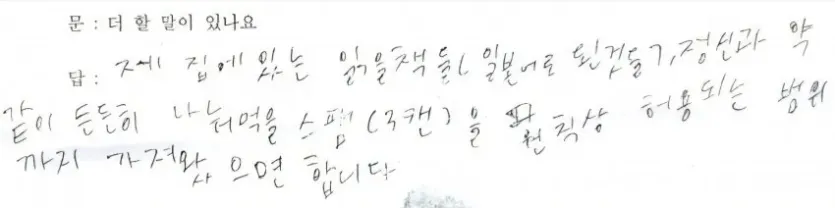 문 : 더 할 말이 있나요
답 : 제 집에 있는 읽을책들(일본어로 된것들), 정신과 약
같이 든든히 나눠먹을 스팸(3캔)을 원칙상 허용되는 범위
까지 가져왔으면 합니다